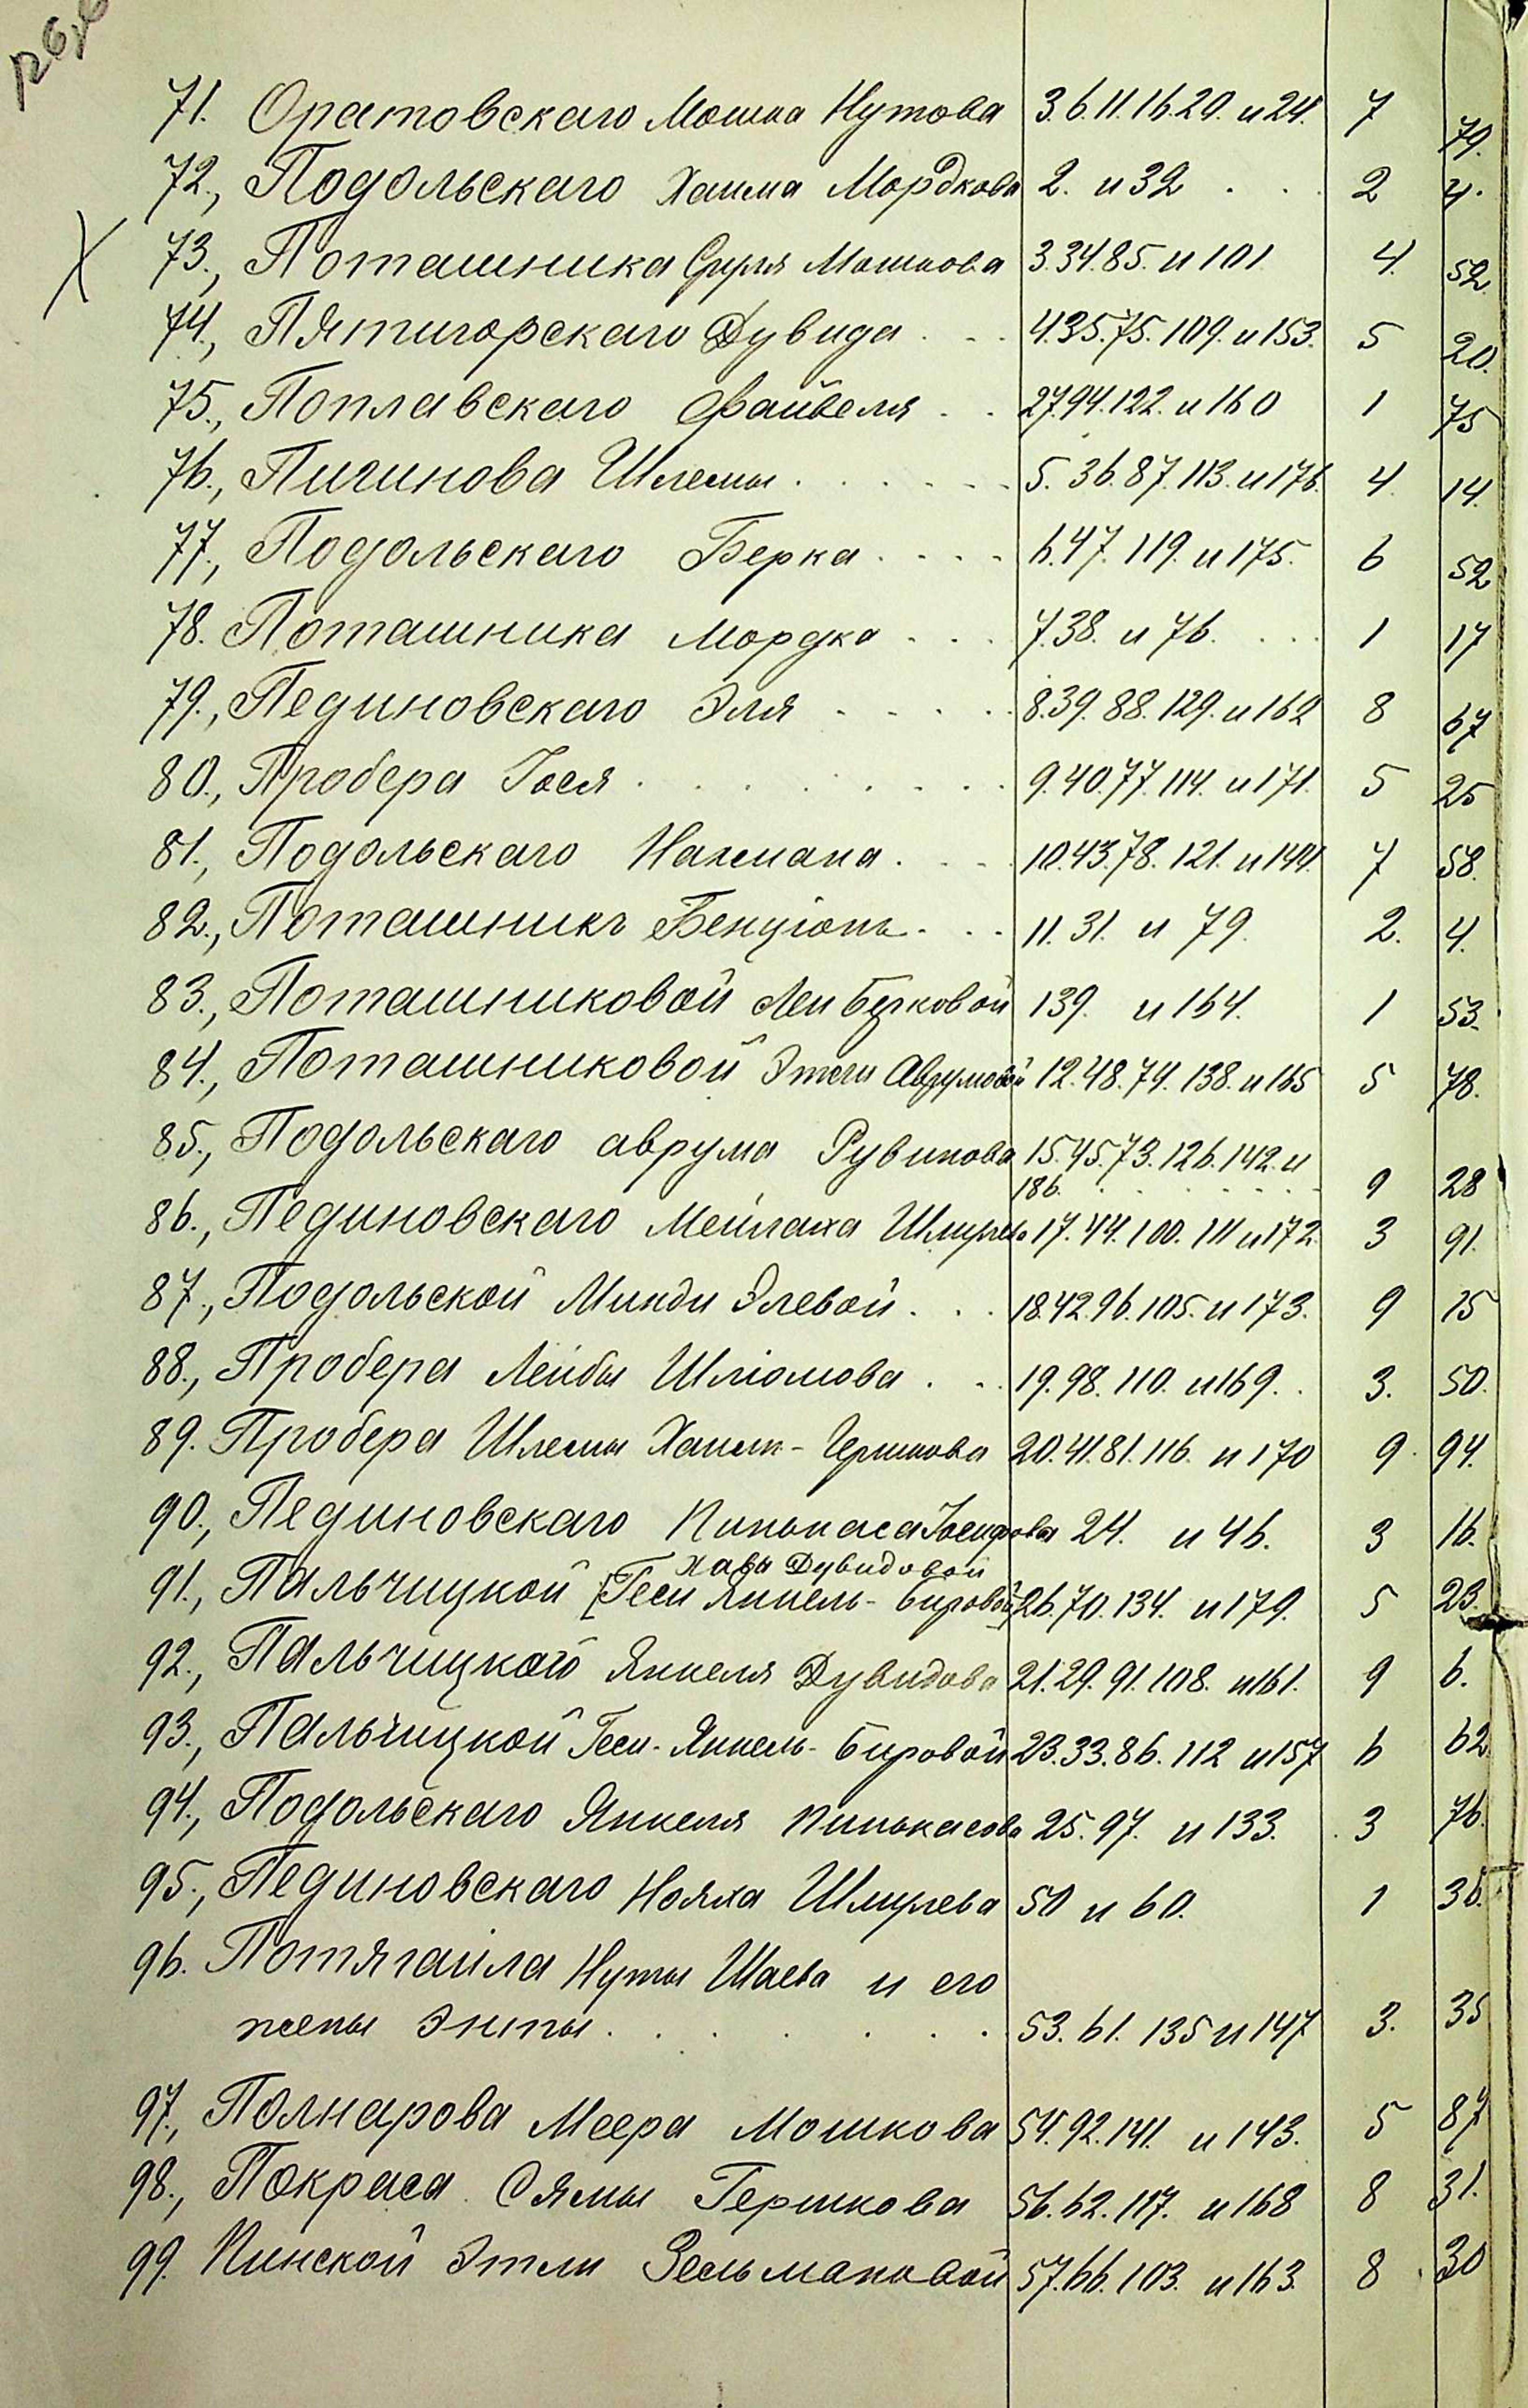 71. Оратовскаго Мошка Нутова 3.6.11.16.20. и 24. 7 79.
72., Подольскаго Хаима Мордкова 2. и 32 . . . 2 4.
73., Поташника Сруля Мошкова 3.34.85. и 101 4. 52.
74., Пятигорскаго Дувида . . . 4.35.75.109. и 153. 5 20.
75., Поплавскаго Файвеля . . 27.94.122. и 160 1 75
76., Пичинова Шлемы . . . . . . 5.36.87.113. и 176. 4 14.
77., Подольскаго Берка . . . . 6.47.119. и 175. 6 52
78. Поташника Мордка . . . 7.38. и 76. . . . 1 17
79., Пединовскаго Эля . . . . . 8.39.88.129. и 162 8 67
80., Пробера Гося . . . . . . . . 9.40.77.114. и 171. 5 25
81., Подольскаго Нахмана . . . 10.43.78.121. и 144. 7 58.
82., Поташникъ Бенціонъ . . . 11.31. и 79. 2. 4.
83., Поташниковой Леи Берковой 139. и 164. 1 53.
84., Поташниковой Этеги Аврумовой 12.48.74.138. и 165 5 78.
85., Подольскаго Аврума Рувинова 15.45.73.126.142. и
186. . . . . . . . 9 28
86., Пединовскаго Мейлаха Шмулева 17.44.100.111 и 172. 3 91.
87., Подольской Минди Элевой . . . 18.42.96.105. и 173. 9 15
88., Пробера Лейбы Шліомова . . . 19.98.110. и 169. . 3. 50.
89. Пробера Шлемы Хаим-Гершкова 20.41.81.116. и 170 9. 94.
90., Пединовскаго Пинькаса Іосифова 24. и 46. 3 16.
Хавы Дувидовой
91., Пальчицкой [Геси Янкель-Бировой] 26.70.134. и 179. 5 23.
92., Пальчицкаго Янкеля Дувидова 21.29.91.108. и 161. 9 6.
93., Пальчицкой Геси-Янкель-Бировой 23.33.86.112 и 157 6 62
94., Подольскаго Янкеля Пинькасова 25.97. и 133. 3 76.
95., Пединовскаго Нояха Шмулева 50 и 60. 1 36.
96. Потягайла Нуты Шаева и его
жены Энты . . . . . . . 53.61.135 и 147 3. 35
97., Полнарова Меера Мошкова 54.92.141. и 143. 5 87
98., Покраса Сямы Гершкова 56.62.117. и 168 8 31.
99. Пинской Этли Зельмановой 57.66.103. и 163. 8 30